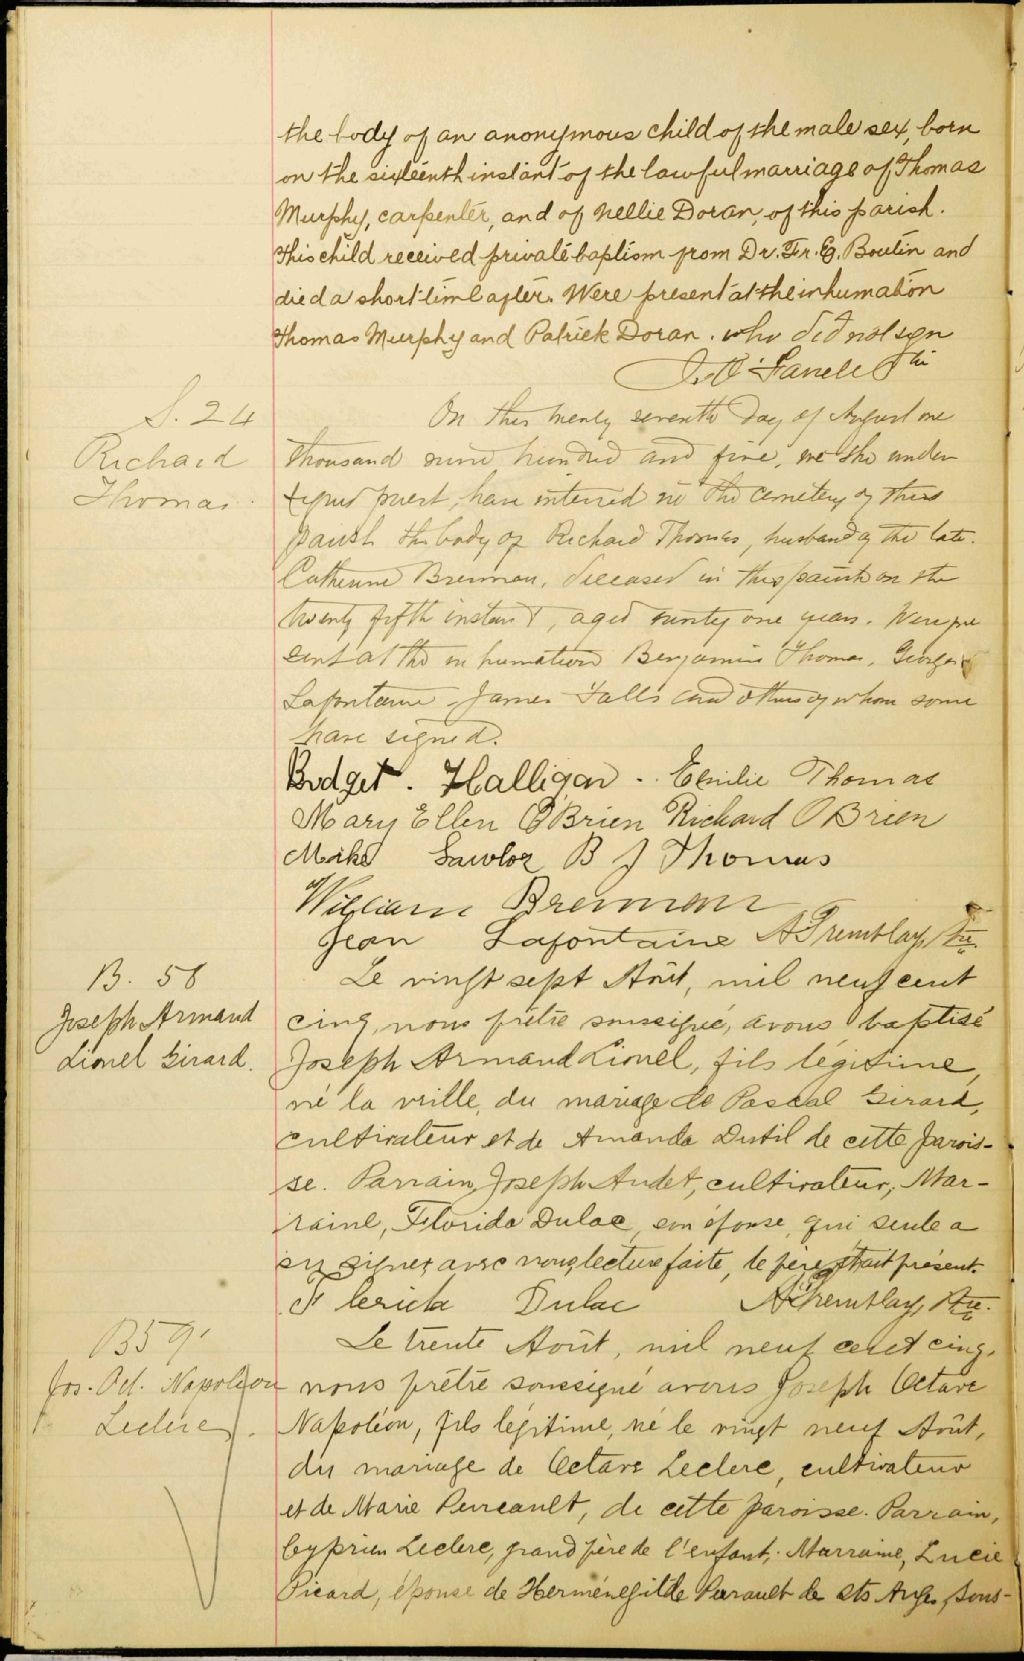 the body of an anonymous child of the male sex, born
on the sixteenth instant of the lawful marriage of Thomas
Murphy, carpenter, and of Nellie Doran, of this parish.
This child received private baptism from Dr. Fr. Eg. Boutin and
died a short time after. Were present at the inhumation
Thomas Murphy and Patrick Doran. who did not sign
S. 24
Richard
Thomas.
On this twenty seventh day of August one
thousand nine hundred and five, we the under
signed priest, have interred in the cemetery of this
parish the body of Richard Thomas, husband of the late
Catherine Brennan, deceased in this parish on the
twenty fifth instant, aged ninety one years. Were pre
sent at the inhumation Benjamin Thomas, George
Lafontaine James Falls and others of whom some
have signed.
Bridget. Halligan. Emilie Thomas
Mary Ellen O'Brien Richard O'Brien
Mike Lawlor B J Thomas
William Brennan
Jean Lafontaine A Tremblay, Ptre.
B. 58
Joseph Armand
Lionel Girard.
Le vingt sept Août, mil neuf cent
cinq, nous prêtre soussigné, avons baptisé
Joseph Armand Lionel, fils légitime,
né la veille, du mariage de Pascal Girard,
cultivateur et de Amanda Dutil de cette parois-
se. Parrain, Joseph Audet, cultivateur, Mar-
raine, Florida Dulac, son épouse, qui seule a
su signer avec nous, lecture faite, le père était présent.
Florida Dulac A Tremblay, Ptre.
B 59
Jos. Oct. Napoléon
Leclerc.
Le trente Août, mil neuf cent cinq,
nous prêtre soussigné avons Joseph Octave
Napoléon, fils légitime, né le vingt neuf Août,
du mariage de Octave Leclerc, cultivateur
et de Marie Perreault, de cette paroisse. Parrain,
Cyprien Leclerc, grand père de l'enfant, Marraine, Lucie
Picard, épouse de Herménégilde Perault de Sts Anges, sous-